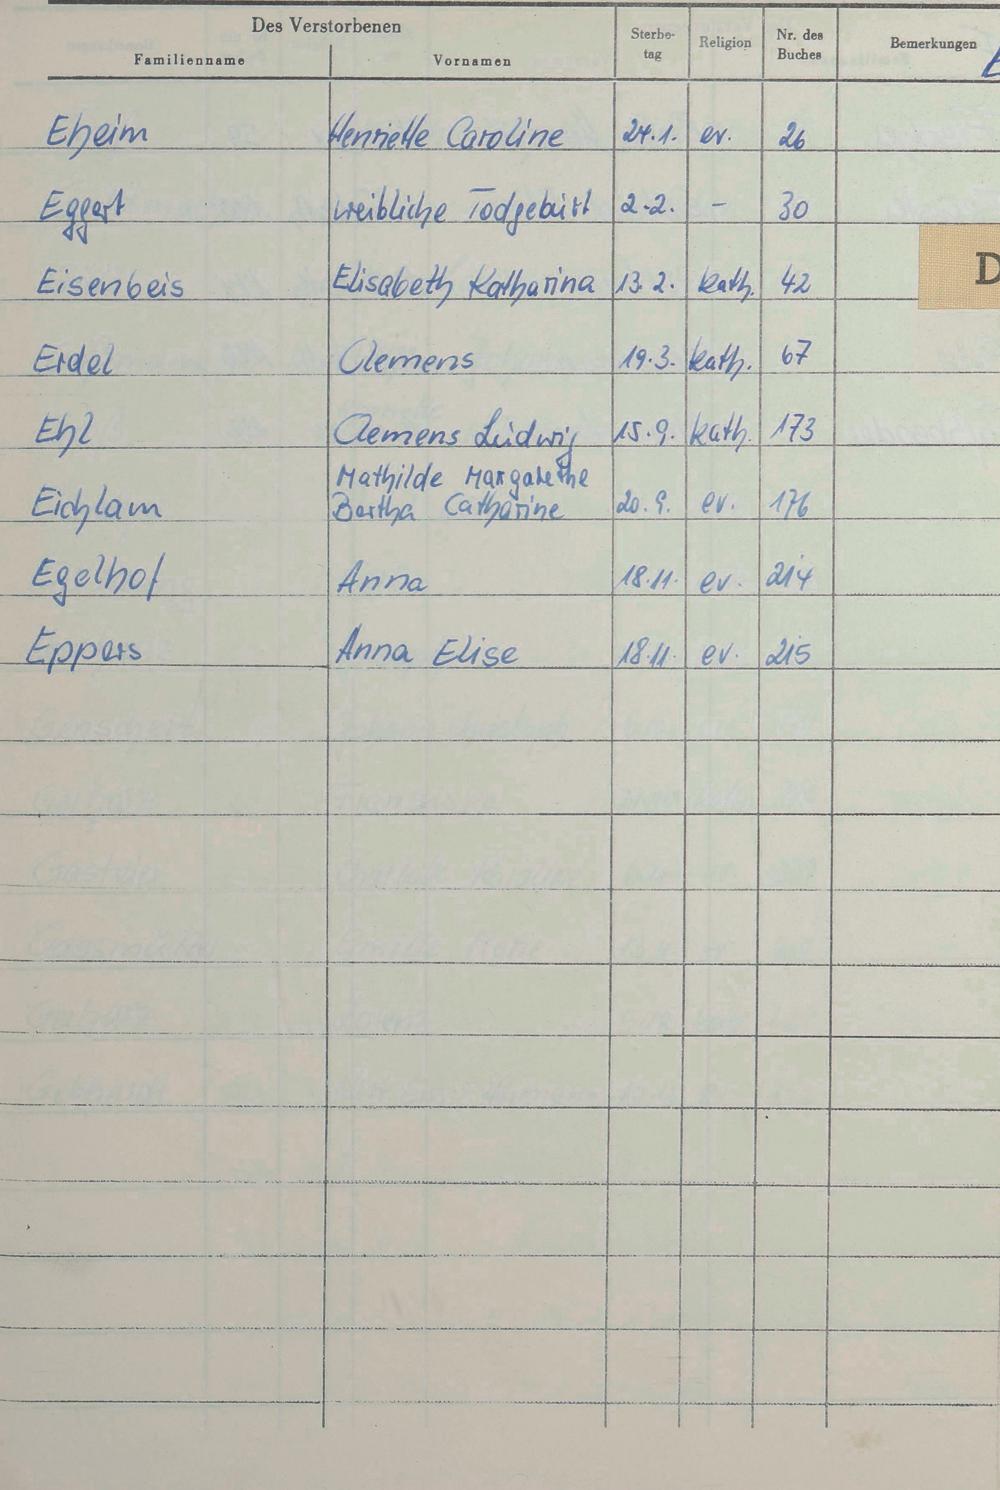 Des Verstorbenen
Familienname Vornamen Sterbe-tag Religion Nr. des Buches Bemerkungen
Eheim Henriette Caroline 24.1. ev. 26
Eggert weibliche Todgeburt 2.2. – 30
D
Eisenbeis Elisabeth Katharina 13.2. kath. 42
Erdel Clemens 19.3. kath. 67
Ehl Clemens Ludwig 15.9. kath. 173
Mathilde Margarethe
Eichlam Bertha Catharine 20.9. ev. 176
Egelhof Anna 18.11. ev. 214
Eppers Anna Elise 18.11. ev. 215